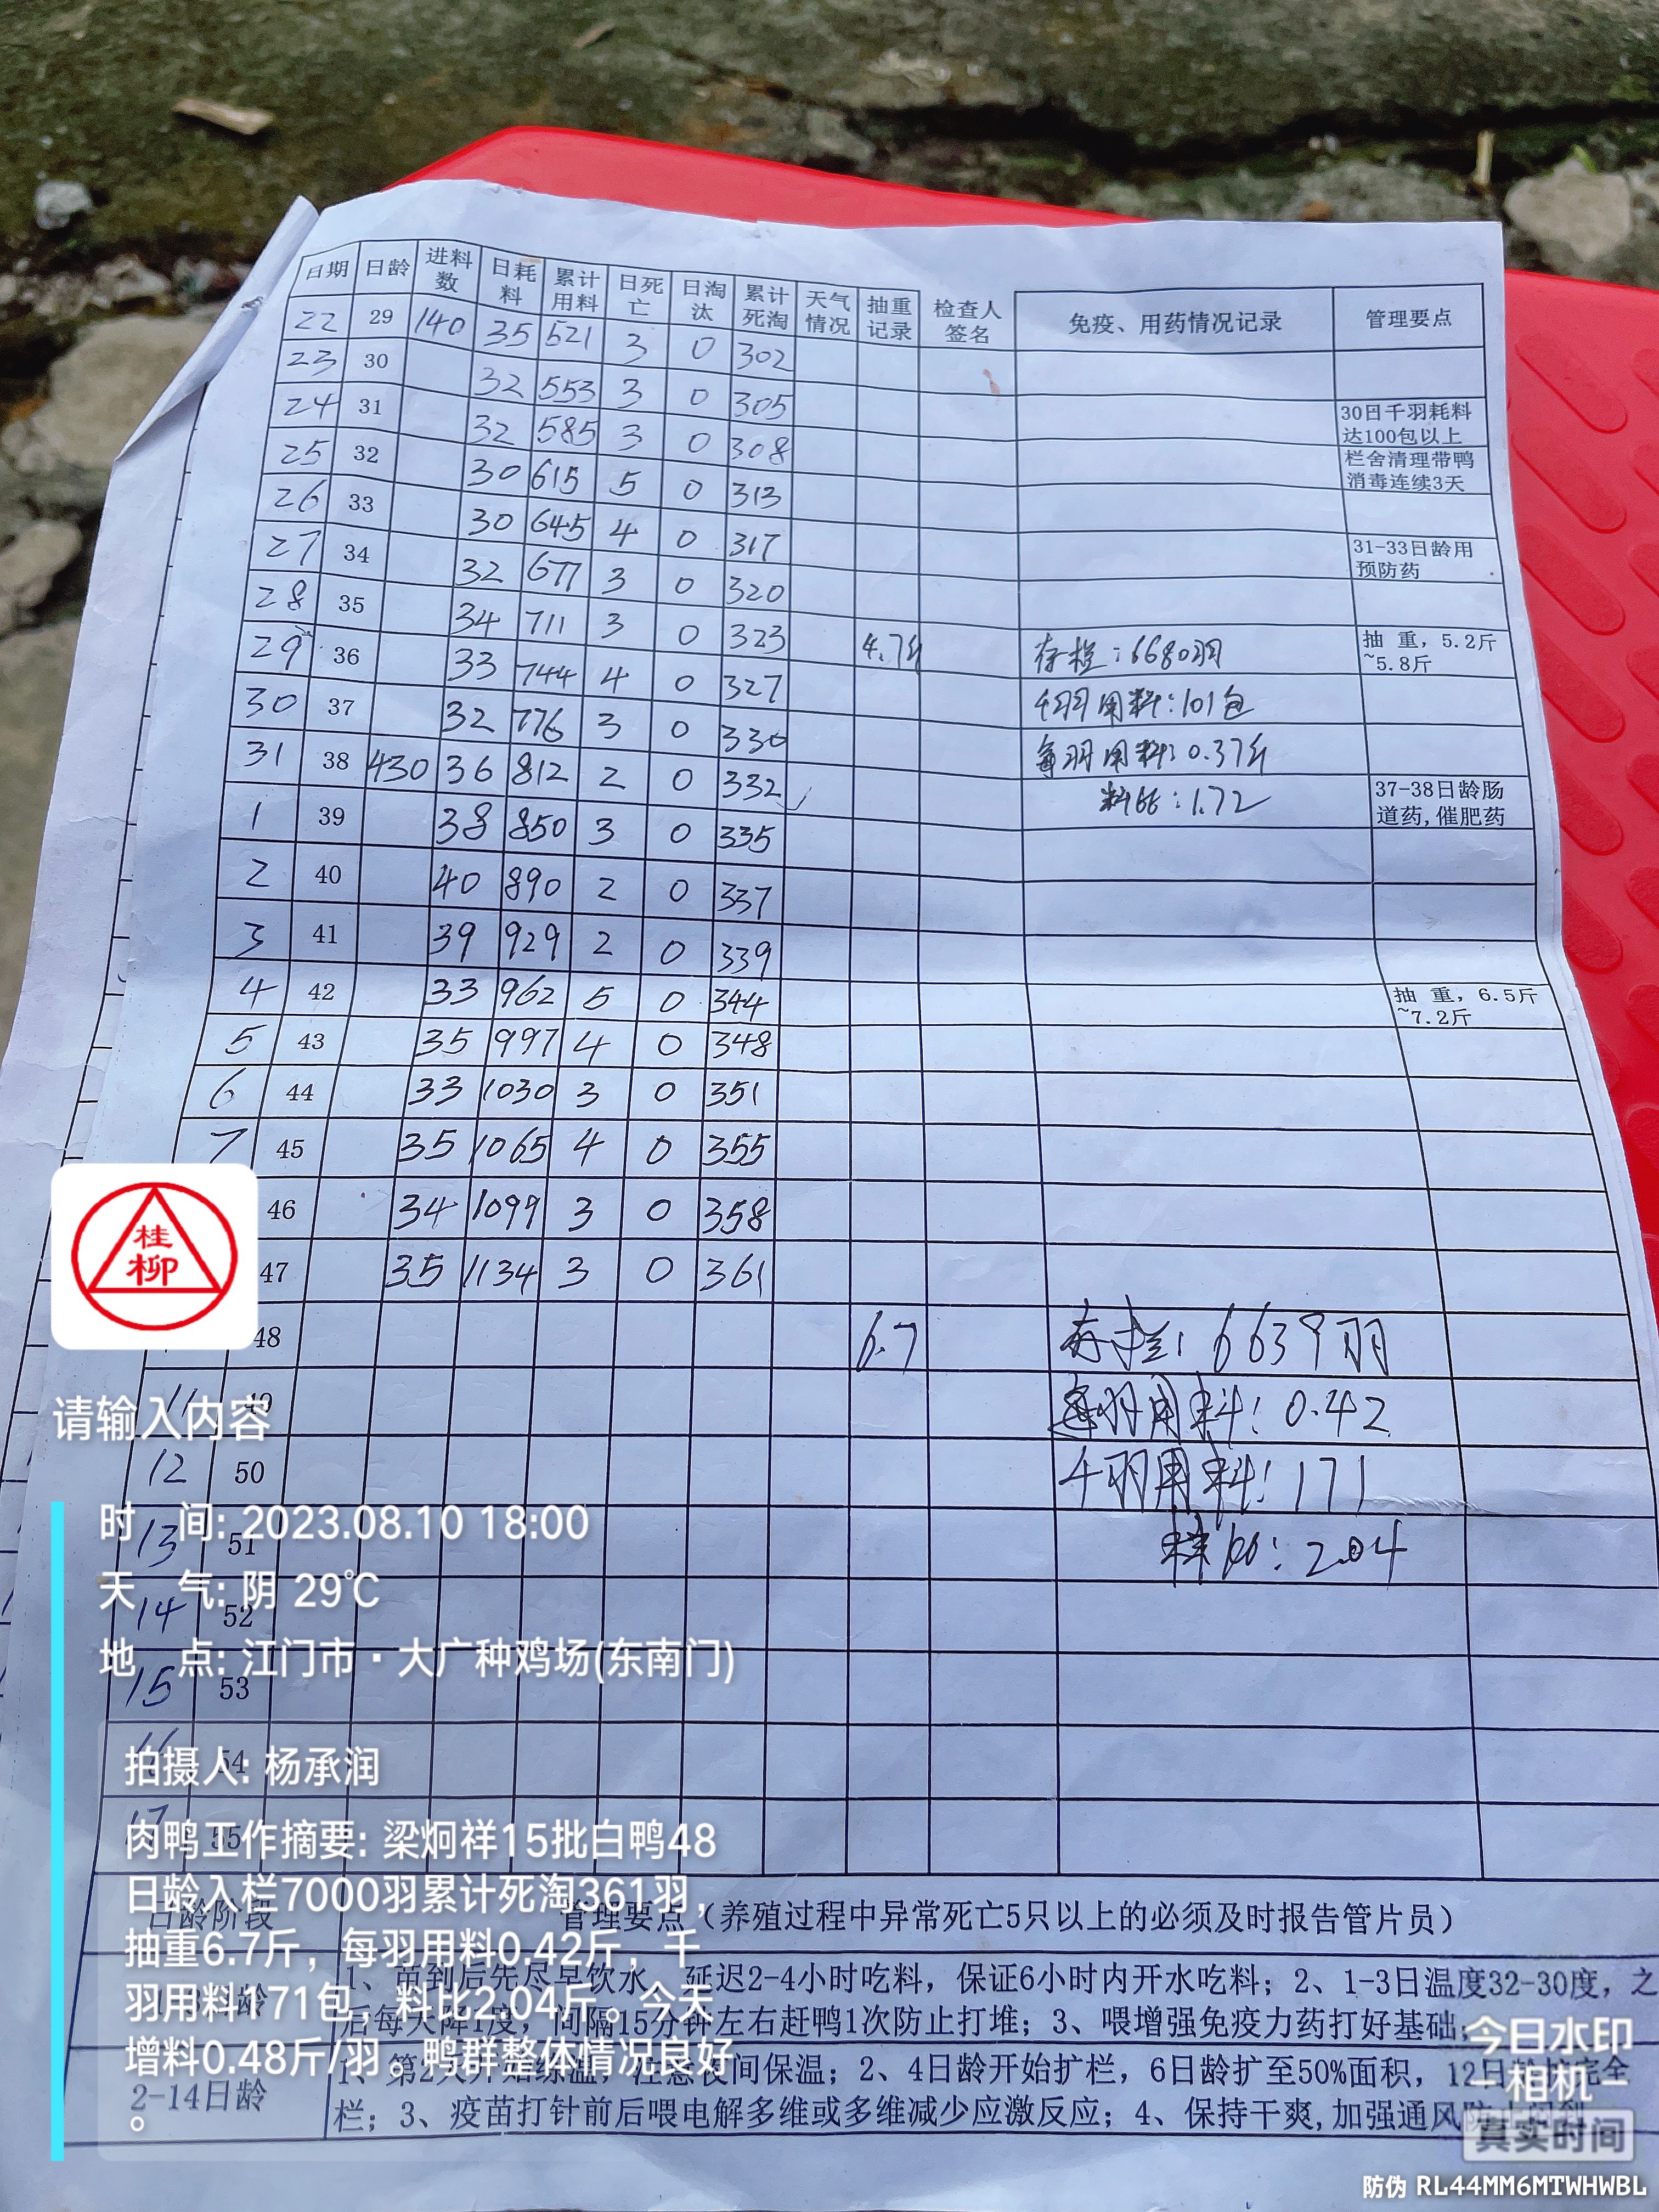 日期 日龄 进料数 日耗料 累计用料 日死亡 日淘汰 累计死淘 天气情况 抽重记录 检查人签名 免疫、用药情况记录 管理要点
22 29 140 35 521 3 0 302
23 30 32 553 3 0 305
24 31 32 585 3 0 308 30日千羽耗料达100包以上
25 32 30 615 5 0 313 栏舍清理带鸭消毒连续3天
26 33 30 645 4 0 317
27 34 32 677 3 0 320 31-33日龄用预防药
28 35 34 711 3 0 323
29 36 33 744 4 0 327 4.7斤 存栏:6680羽 抽 重,5.2斤~5.8斤
30 37 32 776 3 0 330 千羽用料:101包
31 38 430 36 812 2 0 332 每羽用料:0.37斤
1 39 38 850 3 0 335 料比:1.72 37-38日龄肠道药,催肥药
2 40 40 890 2 0 337
3 41 39 929 2 0 339
4 42 33 962 5 0 344 抽 重,6.5斤~7.2斤
5 43 35 997 4 0 348
6 44 33 1030 3 0 351
7 45 35 1065 4 0 355
46 34 1099 3 0 358
47 35 1134 3 0 361
48 6.7 存栏:6639羽
11 49 每羽用料:0.42
12 50 千羽用料:171
13 51 料比:2.04
14 52
15 53
16 54
17 55
桂柳
请输入内容
时 间: 2023.08.10 18:00
天 气: 阴 29℃
地 点: 江门市·大广种鸡场(东南门)
拍摄人: 杨承润
肉鸭工作摘要: 梁炯祥15批白鸭48
日龄入栏7000羽累计死淘361羽,
抽重6.7斤，每羽用料0.42斤，千
羽用料171包，料比2.04斤。今天
增料0.48斤/羽。鸭群整体情况良好
。
日龄阶段 管理要点（养殖过程中异常死亡5只以上的必须及时报告管片员）
1、苗到后先尽早饮水，延迟2-4小时吃料，保证6小时内开水吃料；2、1-3日温度32-30度，之
后每天降1度，间隔15分钟左右赶鸭1次防止打堆；3、喂增强免疫力药打好基础;
2-14日龄
1、第2天开始练温，注意夜间保温；2、4日龄开始扩栏，6日龄扩至50%面积，12日龄扩完全
栏；3、疫苗打针前后喂电解多维或多维减少应激反应；4、保持干爽,加强通风
今日水印
相机
真实时间
防伪 RL44MM6MTWHWBL